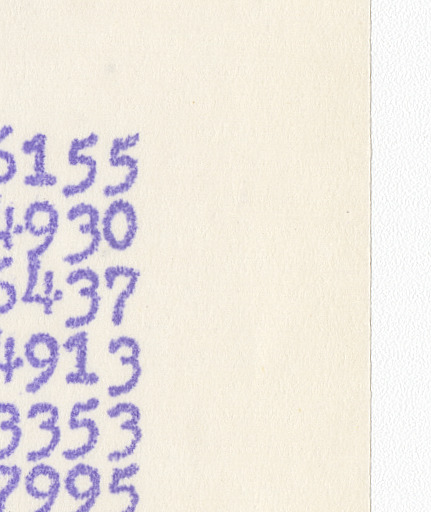 6155
4930
6437
4913
3353
7995